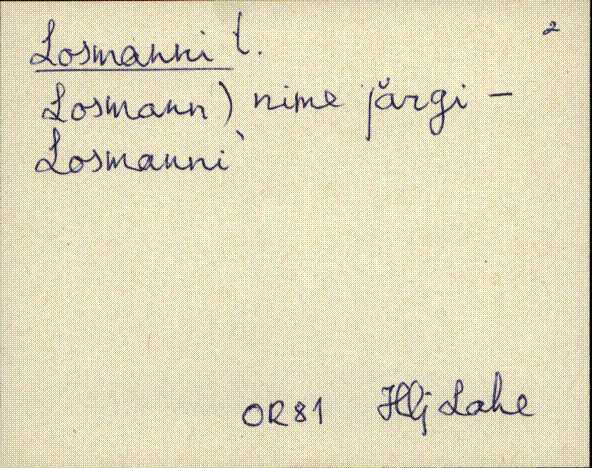 2
Losmanni t.
Losmann) nime järgi –
Losmanni`
OR81 Hlj Lahe